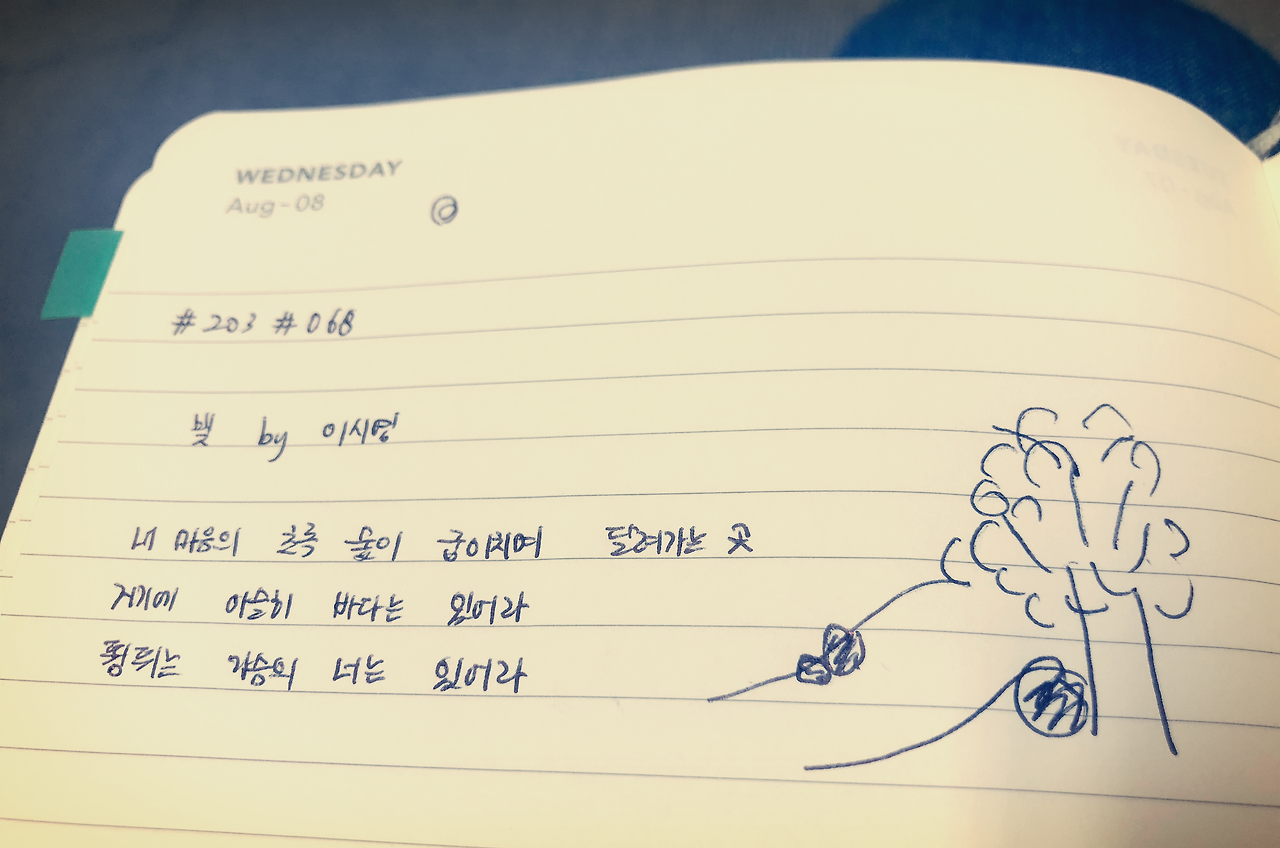 WEDNESDAY
Aug-08
#203 #068
빛 by 이시영
내 마음의 초록 숲이 굽이치며 달려가는 곳
거기에 아슬히 바다는 있어라
뜀뛰는 가슴의 너는 있어라